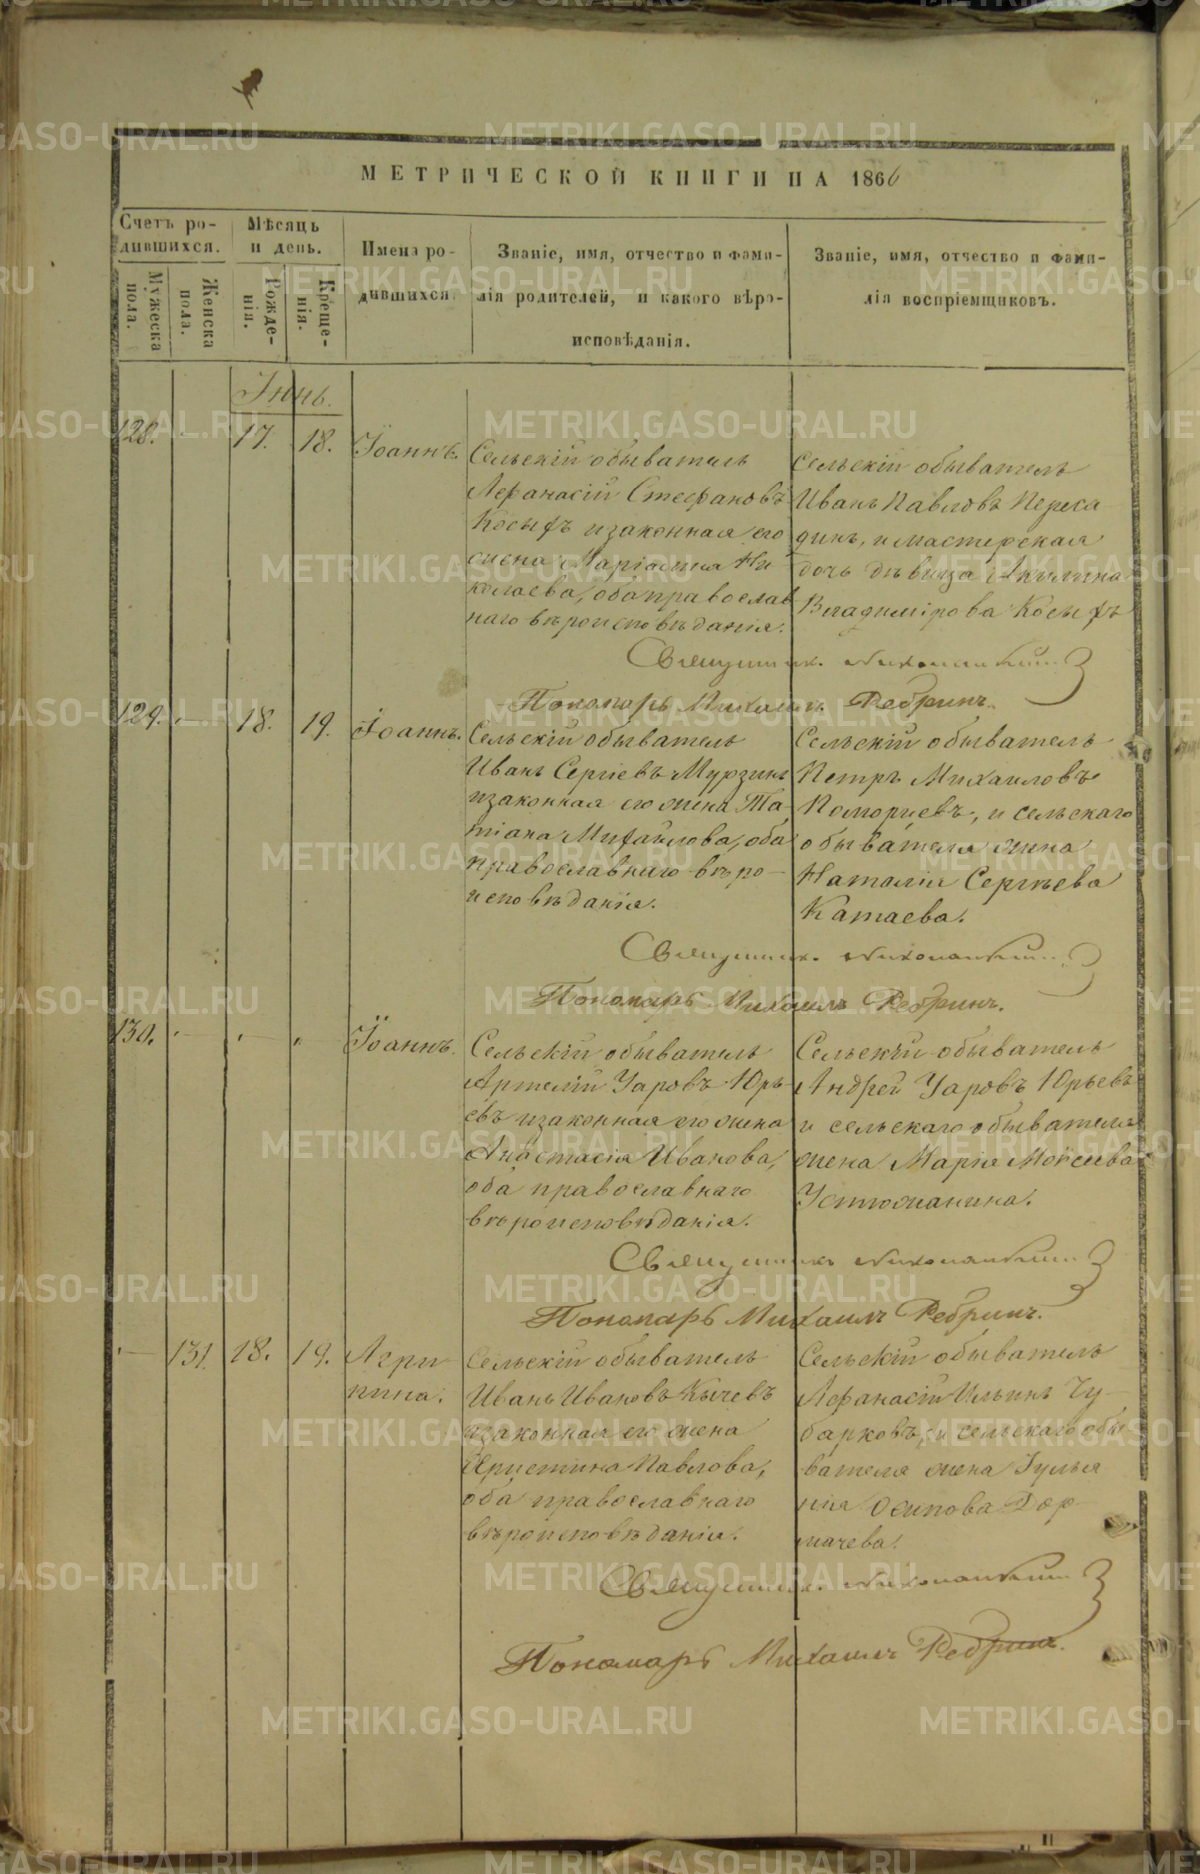 МЕТРИЧЕСКОЙ КНИГИ НА 1866
Счетъ ро-
дившихся.
Мужеска
пола.
Женска
пола.
Мѣсяцъ
и день.
Рожде-
нія.
Креще-
нія.
Имена ро-
дившихся.
Званіе, имя, отчество и фами-
лія родителей, и какого вѣро-
исповѣданія.
Званіе, имя, отчество и фами-
лія воспріемщиковъ.
Іюнь.
128. 17. 18. Іоаннъ.
Сельскій обыватель
Афанасій Стефановъ
Косыхъ и законная его
жена Марія Ни
колаева, оба православ
наго вѣроисповѣданія.
Сельскій обыватель
Иванъ Павловъ
и мастерская
дочь дѣвица Акилина
Владимірова Косыхъ
Священникъ
Пономарь Михаилъ Ребринъ.
129. 18. 19. Іоаннъ.
Сельскій обыватель
Иванъ Сергіевъ Мурзинъ
и законная его жена Та-
тіана Михайлова, оба
православнаго вѣро-
исповѣданія.
Сельскій обыватель
Петръ Михаиловъ
и сельскаго
обывателя жена
Наталія Сергѣева
Катаева.
Священникъ
Пономарь Михаилъ Ребринъ.
130. Іоаннъ.
Сельскій обыватель
Уаровъ Юрь
евъ и законная его жена
Анастасія Иванова,
оба православнаго
вѣроисповѣданія.
Сельскій обыватель
Андрей Уаровъ Юрьевъ
и сельскаго обывателя
жена Марія Моисеева
Устюжанина.
Священникъ
Пономарь Михаилъ Ребринъ.
131. 18. 19. Агри
пина.
Сельскій обыватель
Иванъ Ивановъ Кычевъ
и законная его жена
Христина Павлова,
оба православнаго
вѣроисповѣданія.
Сельскій обыватель
Афанасій Ильинъ Чу-
барковъ, и сельскаго обы
вателя жена Іулья
нія Осипова Дор
мачева.
Священникъ
Пономарь Михаилъ Ребринъ.
METRIKI.GASO-URAL.RU